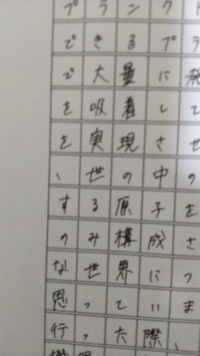 プランクト
できるプラ
で大量に発
を吸着して
を実現させ
、世の中の
する原子を
のみ構成さ
な世界につ
思っていま
行った際、